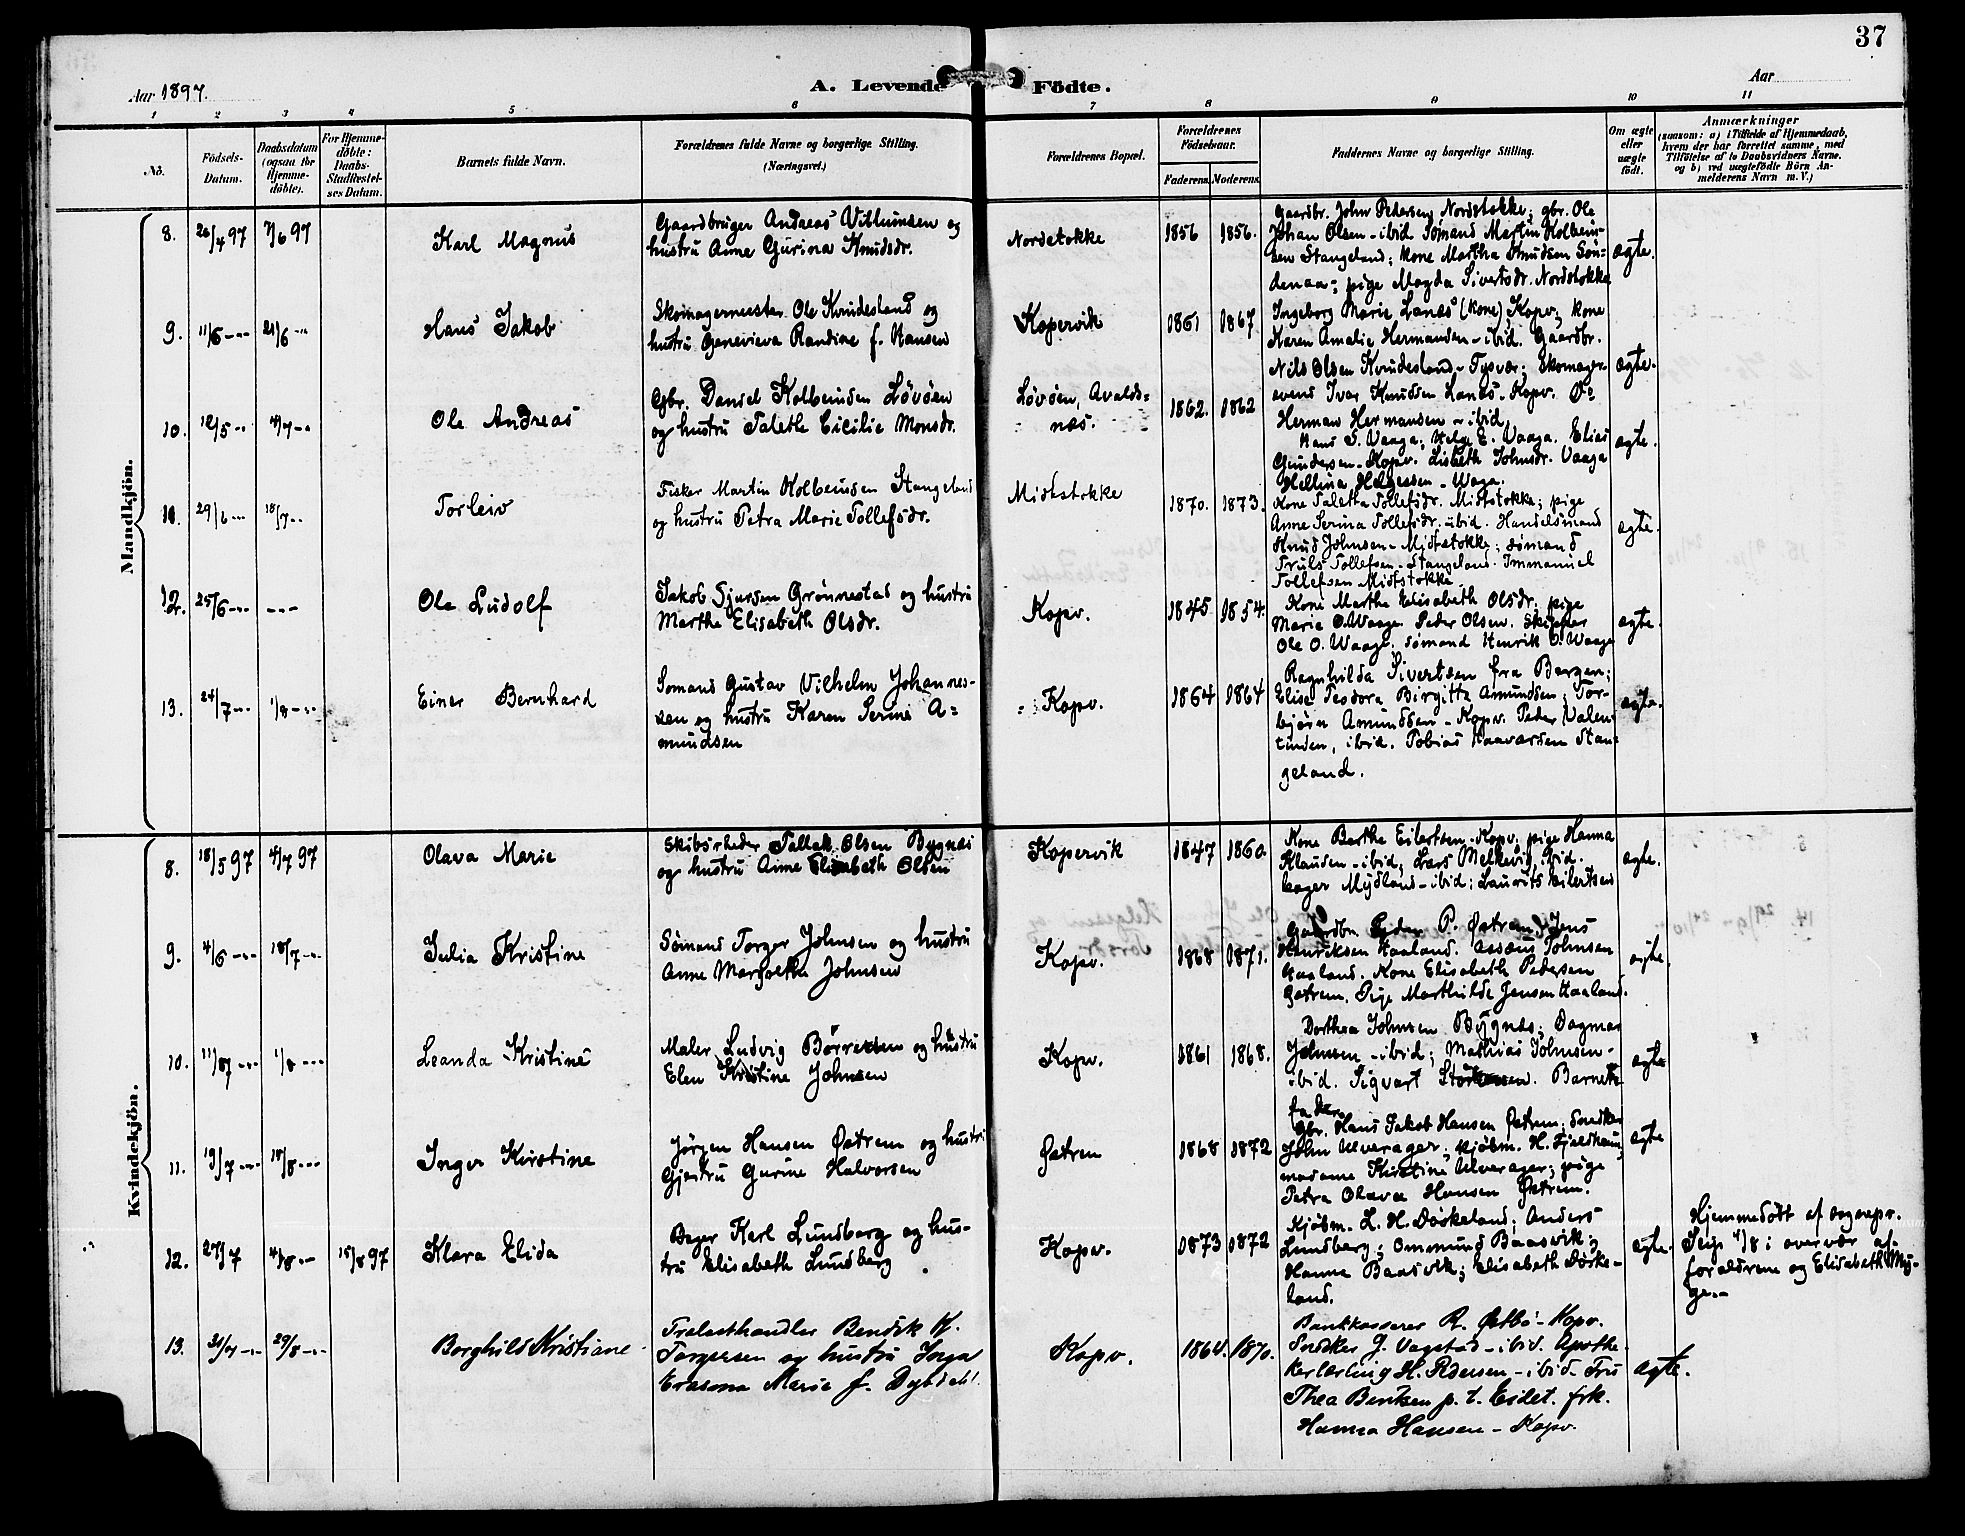 37
Aar 1897.
A. Levende Födte.
Aar
1 2 3 4 5 6 7 8 9 10 11
No.
Födsels-
Datum.
Daabsdatum
(ogsaa for
Hjemme-
döbte).
For Hjemme-
döbte:
Daabs-
Stadfæstel-
ses Datum.
Barnets fulde Navn.
Forældrenes fulde Navne og borgerlige Stilling.
(Næringsvei.)
Forældrenes Bopæl.
Forældrenes
Födselsaar.
Faderens. Moderens.
Faddernes Navne og borgerlige Stilling.
Om ægte
eller
uægte
født.
Anmærkninger
(saasom: a) i Tilfælde af Hjemmedaab,
hvem der har forrettet samme, med
Tilføielse af to Daabsvidners Navne.
og b) ved uægtefødte Börn An-
melderens Navn m. V.)
Mandkjön.
8. 26/4 97 7/6 97
Karl Magnus
Gaardbruger Andreas Villumsen og
hustru Anne Gurina Knudsdr.
Nordstokke
1856 1856.
Gaardbr. John Pedersen Nordstokke; gbr. Ole
Johan Olsen - ibid Sømand Martin Kolbein-
sen Stangeland; kone Martha Knudsen Søn-
denaa; pige Magda Sivertsdr. Nordstokke
ægte.
9. 11/5 -"- 21/6 -"-
Hans Jakob
Skomagermester Ole Kvindesland og
hustru Genevieva Randine f. Hansen
Kopervik
1861 1867
Ingeborg Marie Lanæs (kone) Kopv; kone
Karen Amalie Hermansen - ibid. Gaardbr.
Nils Olsen Kvindesland - Tysvær; Skomager-
svend Ivar Knudsen Lanæs - Kopv. Do
Herman Hermansen - ibid.
ægte.
10. 12/5 -"- 4/7 -"-
Ole Andreas
Gbr. Daniel Kolbeinsen Løvøen
og hustru Talethe Cicilie Monsdr.
Løvøen, Avalds-
næs.
1862. 1862
Hans S. Vaaga; Helge E. Vaaga. Elias
Gundersen - Kopv. Lisbeth Johnsdr. Vaaga
Hellina Helgesen - Waga.
ægte.
11. 29/6 -"- 18/7 -"-
Torleiv
Fisker Martin Kolbeinsen Stangeland
og hustru Petra Marie Tollefsdr.
Midtstokke
1870. 1873.
Kone Taletta Tollefsdr. Midtstokke; pige
Anne Serina Tollefsdr. ibid. Handelsmand
Knud Johnsen - Midtstokke; sømand
Truls Tollefsen - Stangeland. Immanuel
Tollefsen Midtstokke
ægte.
12. 25/6 -"- -"-
Ole Ludolf
Jakob Sjursen Grønnestad og hustru
Marthe Elisabeth Olsdr.
Kopv.
1845 1854.
Kone Marthe Elisabeth Olsdr. pige
Marie O. Waage. Peder Olsen. Skipper
Ole O. Waage. sømand Henrik O. Waage
ægte.
13. 24/7 -"- 1/8 -"-
Einer Bernhard
Sømand Gustav Vilhelm Johannes-
sen og hustru Karen Serine A-
mundsen
Kopv.
1864 1864
Ragnhilda Sivertsen fra Bergen;
Elise Teodora Birgitta Amundsen; Tor-
bjørn Amundsen - Kopv. Peder Valen-
tinsen, ibid. Tobias Haavardsen Stan-
geland.
ægte.
Kvindekjön.
8. 18/5 97 4/7 97
Olava Marie
Skibsrheder Tallak Olsen Bygnæs
og hustru Anne Elisabeth Olsen
Kopervik
1847 1860
Kone Berthe Eilertsen - Kopv, pige Hanna
Klausen - ibid; Lars Melkevig, ibid.
bager Mydland - ibid; Laurits Eilertsen
ægte.
9. 4/6 -"- 18/7 -"-
Julia Kristine
Sømand Torger Johnsen og hustru
Anne Margrethe Johnsen
Kopv.
1868 1871.
Gaardbr. Peder P. Østrem, Jens
Henriksen Haaland. Johnsen
Haaland. Kone Elisabeth Pedersen
Østrem. Pige Marthilde Jensen Haaland.
ægte.
10. 11/7 -"- 1/8 -"-
Leanda Kristine
Maler Ludvig Børresen og hustru
Elen Kristine Johnsen
Kopv.
1861 1868.
Dorthea Johnsen Bygnæs; Dagmar
Johnsen - ibid; Mathias Johnsen -
ibid. Sigvart Barnets
fader.
ægte
11. 19/7 -"- 18/8 -"-
Inger Kirstine
Jørgen Hansen Østrem og hustru
Gjertru Gurine Halvorsen
Østrem
1868 1872
Gbr. Hans Jakob Hansen Østrem; Snedker
John Ulverager; kjøbm. H. Fjeldheim;
madame Kirstine Ulverager; pige
Petra Olava Hansen Østrem.
ægte
12. 27/7 4/8 -"- 15/8 97
Klara Elida
Bager Karl Lundberg og hus-
tru Elisabeth Lundberg
Kopv.
1873 1872
Kjøbm. L. H. Dørkeland; Anders
Lundberg; Ommund Baasvik;
Hanna Baasvik; Elisabeth Dørke-
land.
ægte.
Hjemmedøbt af sogepr.
Seip 4/8 i overvær af
forældrene og Elisabeth My-
ge.-
13. 31/7 -"- 29/8 -"-
Borghild Kristiane
Trelasthandler Bendik K.
Torgersen og hustru Inga
Erasma Marie f. Dybdahl
Kopv.
1864. 1870.
Bankkasserer R. Østbø - Kopv.
Snedker G. Vagstad - ibid. Apothe-
kerlærling H. - ibid. Fru
Thea Bentsen p. t. Eidet. frk.
Hanna Hansen - Kopv.
ægte.